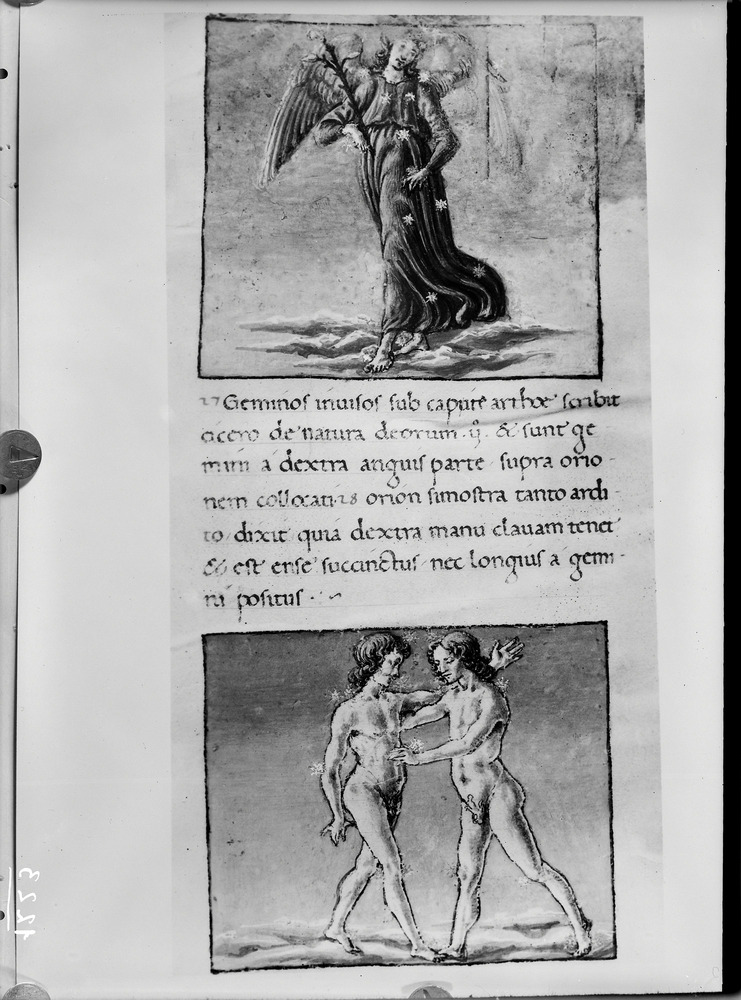 27 Geminos inuisos sub capite arthoe scribit
cicero de natura deorum · ij · & sunt ge
mini a dextra anguis parte supra orio
nem collocati · 28 orion sinostra tanto ardi
to dixit quia dextra manu clauam tenet
& est ense succinctus nec longius a gemi
ni positus
1223